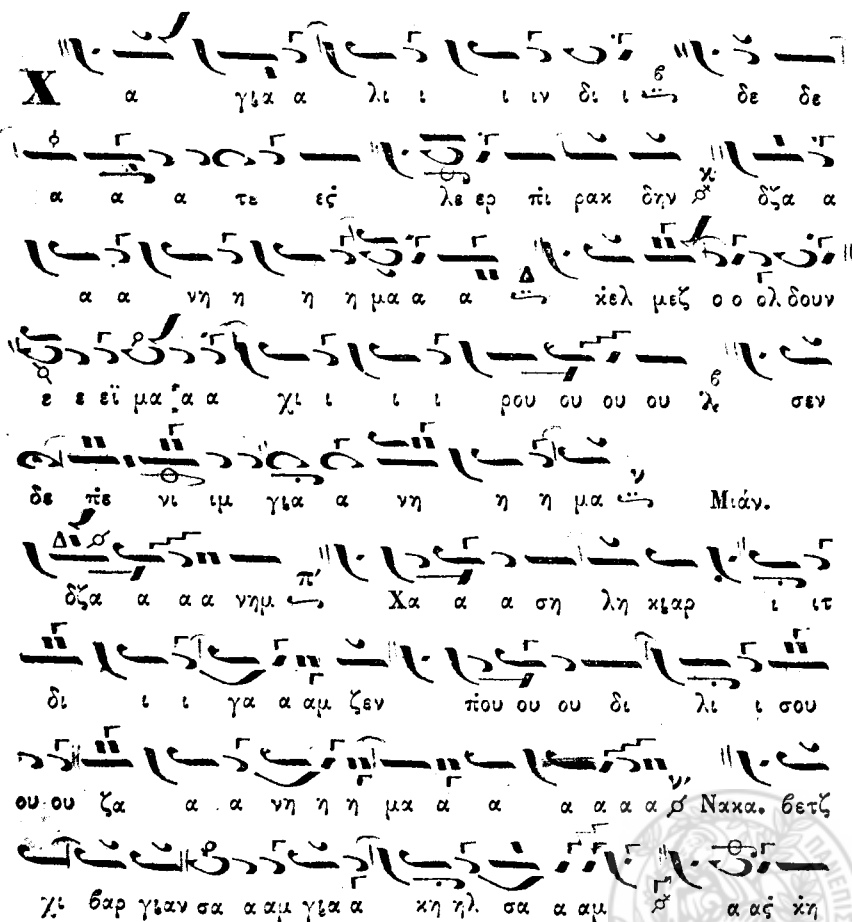 Χ α γιa α λι ι ι ιν δι ι β δε δε
α α α τε ες λε ερ πι ρακ δην κ δζα α
α α νη η η η μα α α Δ κελ μεζ ο ο ολ δουν
ε ε εϊ μα α α χι ι ι ι ρου ου ου ου β σεν
δε πε νι ιμ για α νη η η μα ν Μιάν.
δζα α α α νημ π' Χα α α ση λη κιαρ ι ιτ
δι ι ι γα α αμ ζεν που ου ου δι λι ι σου
ου ου ζα α α νη η η μα α α α α α α ν' Νακα. βετζ
χι βαρ γιαν σα α αμ για α κη ηλ σα α αμ α ας κη